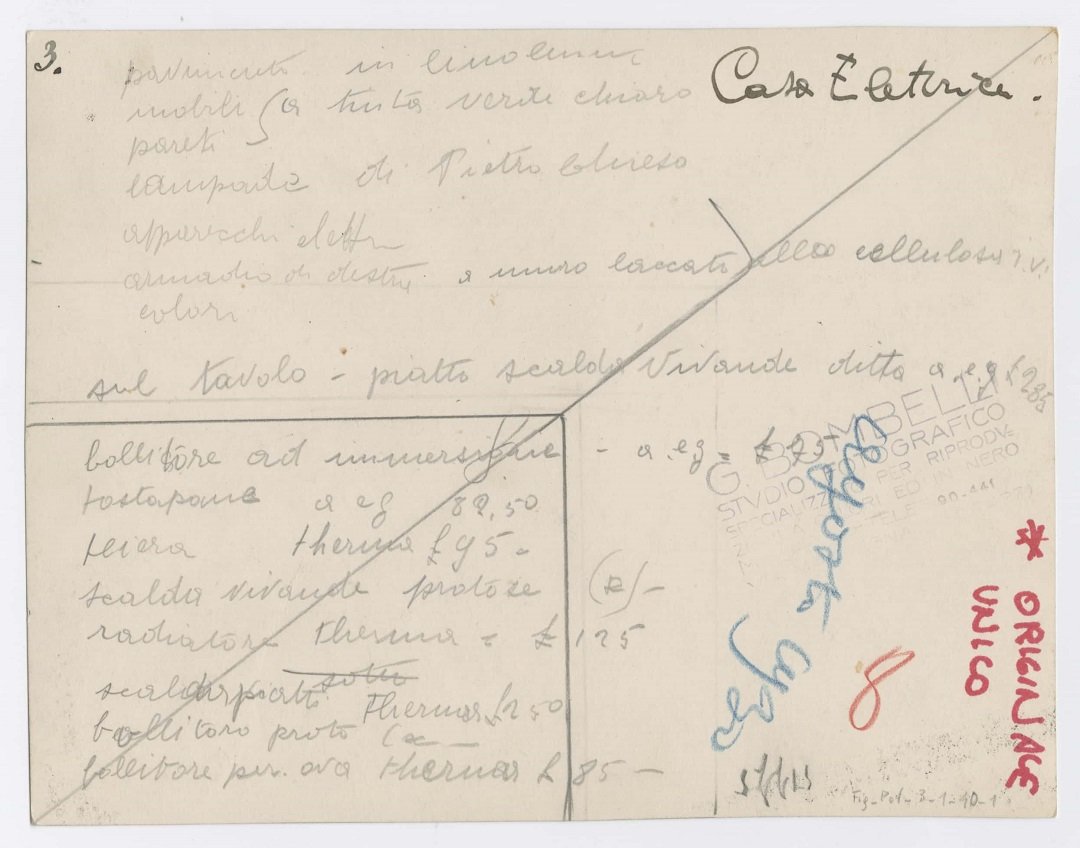 3.
Casa Elettrica.
pavimento in linoleum
mobili { a tinta verde chiaro
pareti
lampada di Pietro Chiesa
apparecchi elettr
armadio di destra a muro laccato alla cellulosa
colori
sul tavolo - piatto scalda vivande ditta a.e.g £ 285
bollitore ad immersione - a.eg = £
tostapane a eg 82,50
teiera therma £ 95 -
scalda vivande protose
radiatore therma = £ 125
scaldapiatti sotto therma £ 250
bollitore proto
bollitore per ova therma £ 85 -
G. BOMBELLI
STVDIO FOTOGRAFICO
PER RIPRODV=
ED IN NERO
90-441
8
* ORIGINALE
UNICO
Fig-Pot-3-1-10-1